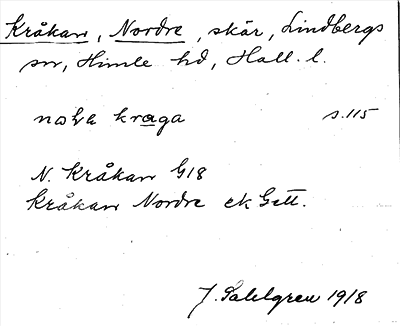 Kråkan, Nordre, skär, Lindbergs
sn, Himle hd, Hall. l.
kraga s.115
N. Kråkan G18
Kråkan Nordre ek Gett.
J. Sahlgren 1918